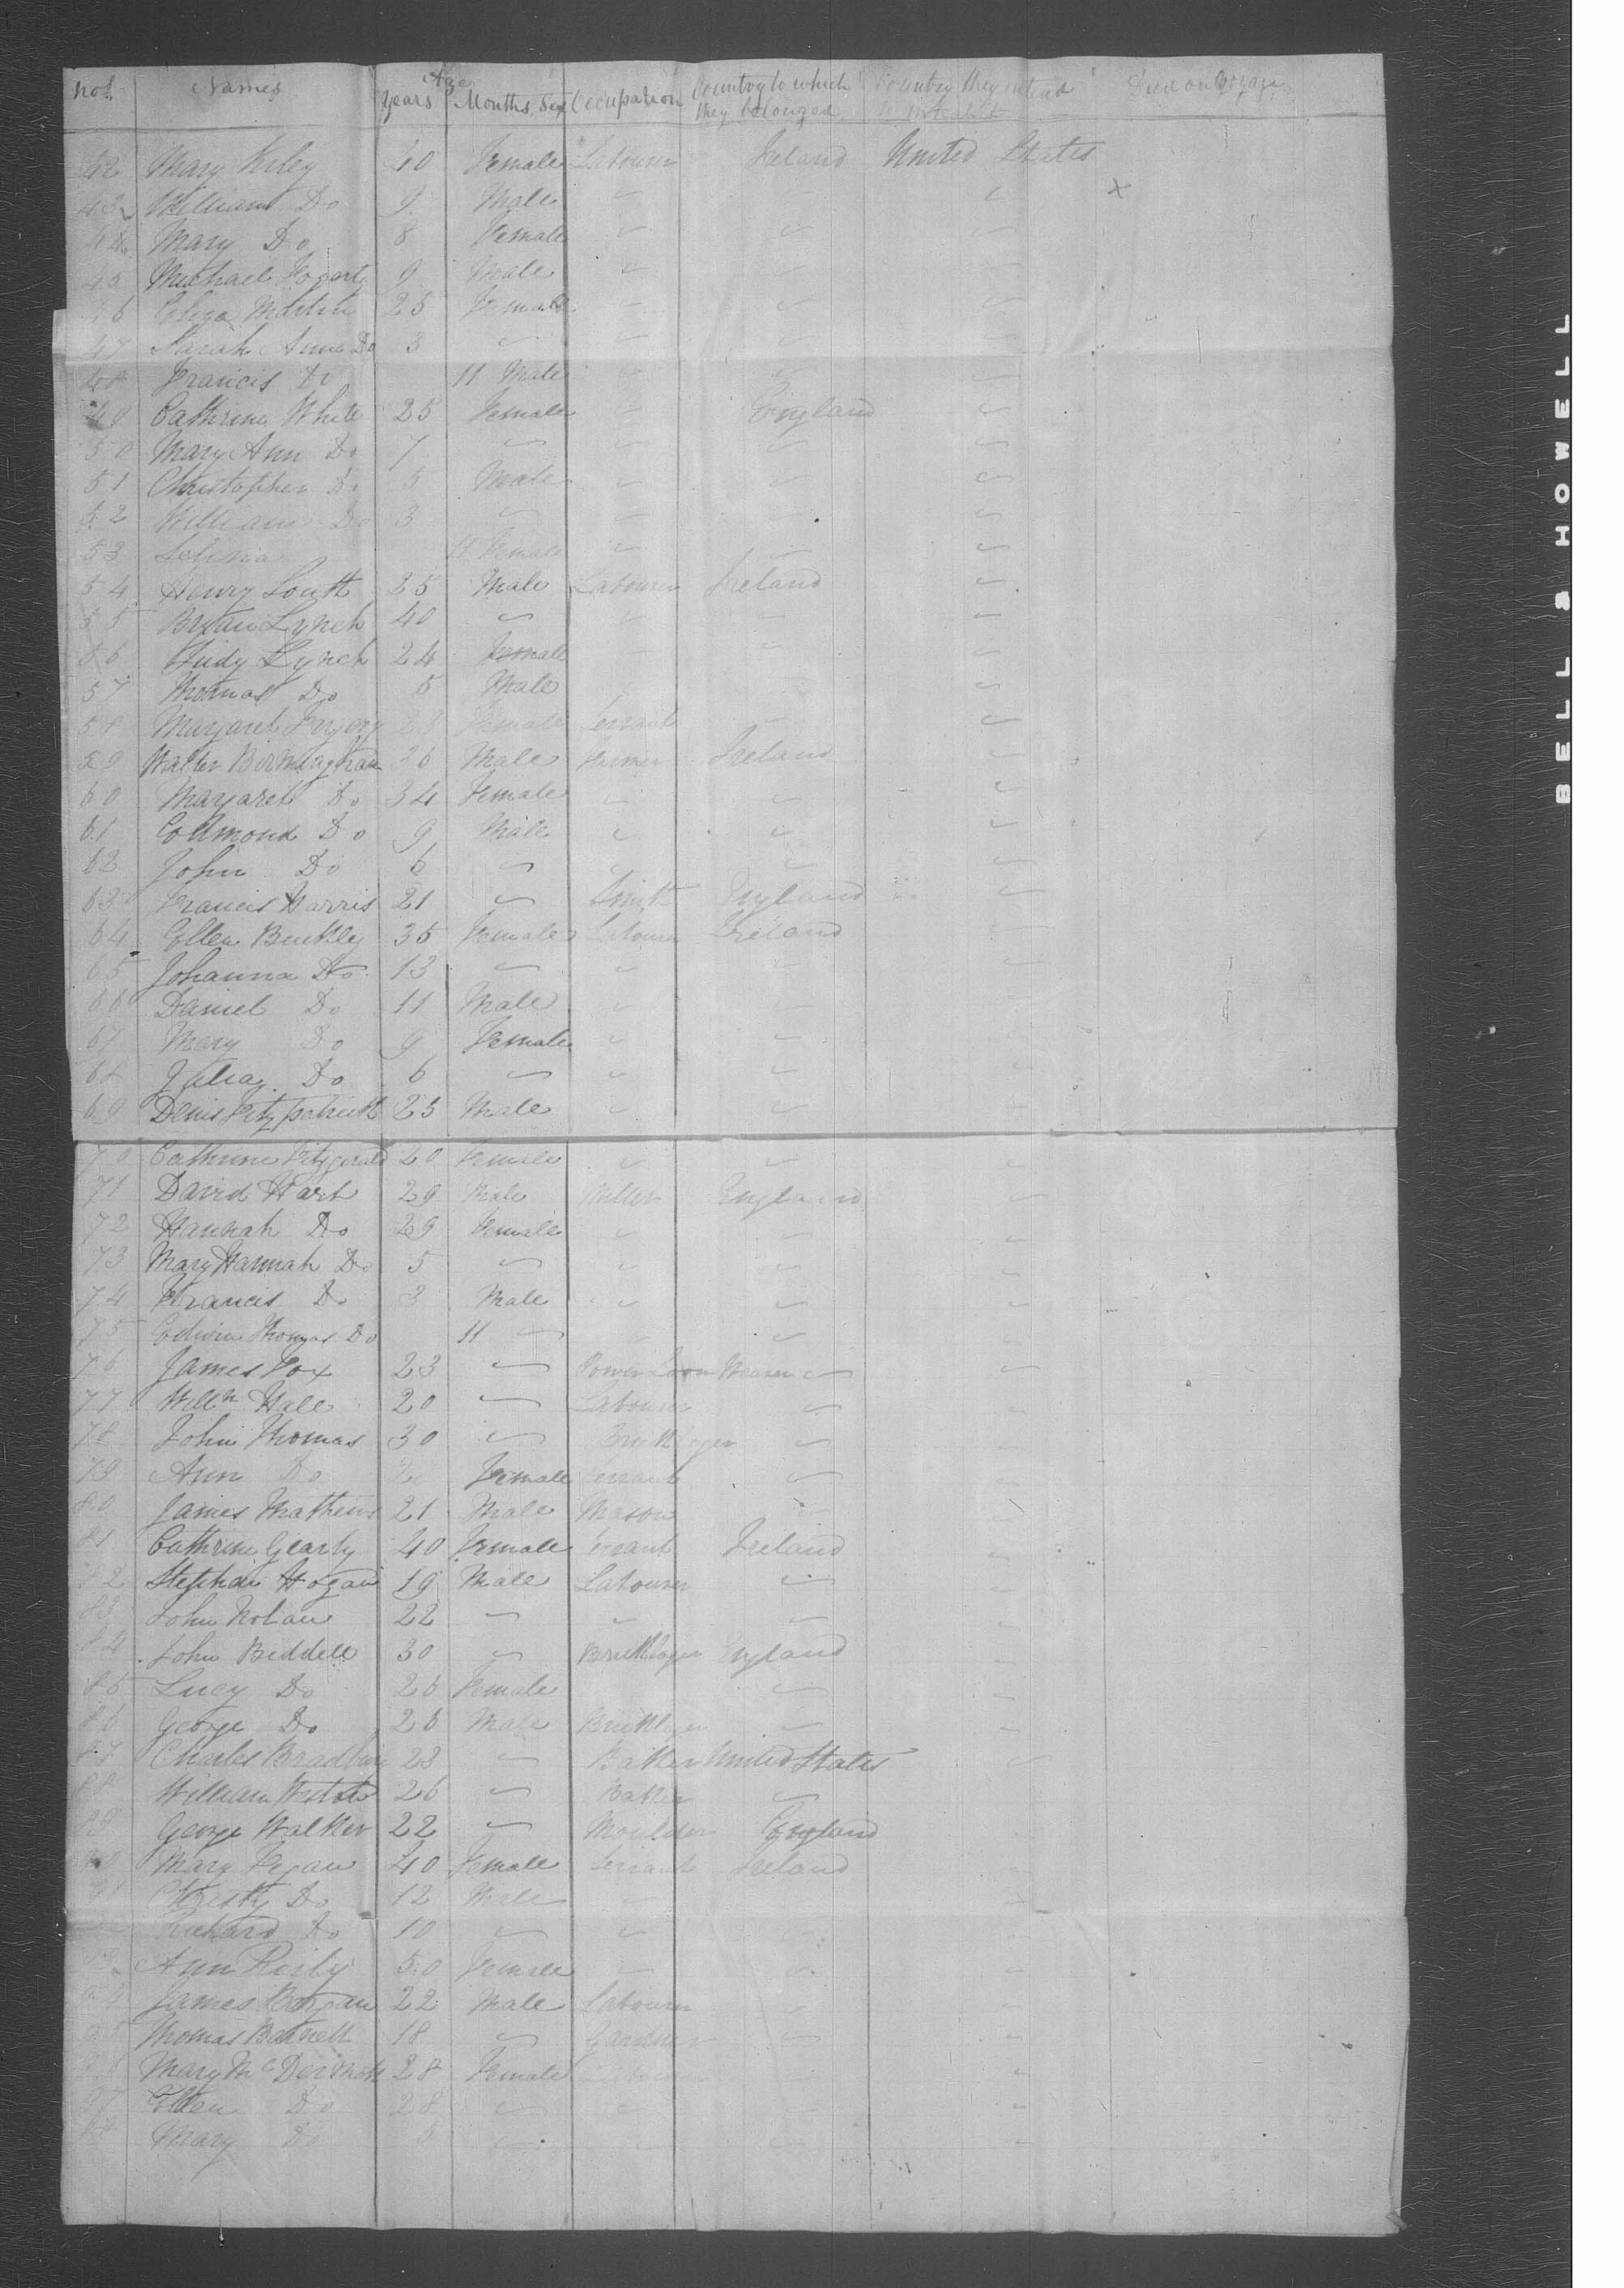 Nos. Names Age Years Months Sex Occupation Country to which they belonged Country they intend to inhabit Died on Voyage
42 Mary Kiley 40 Female Labourer Ireland United States
43 William Do 9 Male
44 Mary Do 8 Female
45 Michael 9 Male
46 Eliza Martin 25 Female
47 Sarah Anne Do 3
48 Francis Do 11 Male
49 Cathrine White 25 Female England
50 Mary Ann Do 7
51 Christopher Do 5 Male
52 William Do 3
53 Selina 11 Female
54 Henry South 25 Male Labourer Ireland
55 Bryan Lynch 40
56 Judy Lynch 24 Female
57 Thomas Do 5 Male
58 Margaret 28 Female Servant
59 Walter Birmingham 36 Male Farmer Ireland
60 Margaret Do 34 Female
61 Edmond Do 9 Male
62 John Do 6
63 Francis Harris 21 Smith England
64 Ellen Buckley 35 Female Labourer Ireland
65 Johanna Do 13
66 Daniel Do 11 Male
67 Mary Do 9 Female
68 Julia Do 6
69 Denis Fitzpatrick 25 Male
70 Cathrine Fitzgerald 20 Female
71 David Hart 29 Male Miller England
72 Hannah Do 29 Female
73 Mary Hannah Do 5
74 Francis Do 3 Male
75 Edwin Thomas Do 11
76 James Fox 23 Power Loom Weaver
77 Willm Hall 20 Labourer
78 John Thomas 30 Bricklayer
79 Ann Do Female Servant
80 James Mathews 21 Male Mason
81 Cathrine Gearty 40 Female Servant Ireland
82 Stephen Hogan 19 Male Labourer
83 John Nolan 22
84 John Beddell 30 Bricklayer England
85 Lucy Do 26 Female
86 George Do 26 Male Bricklayer
87 Charles Bradbury 23 Baker United States
88 William 26 Baker
89 George Walker 22 Moulder England
90 Mary Fegan 40 Female Servant Ireland
91 Christy Do 12 Male
Richard Do 10
93 Ann Reily 50 Female
94 James 22 Male Labourer
95 Thomas 18 Gardner
96 Mary McDermott 28 Female
97 Ellen Do 28
98 Mary Do
BELL & HOWELL